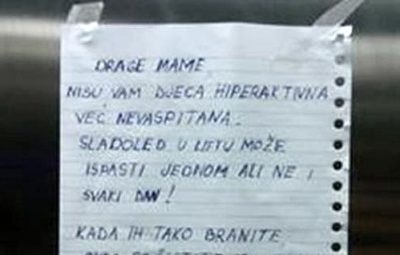 DRAGE MAME
NISU VAM DJECA HIPERAKTIVNA
VEĆ NEVASPITANA.
SLADOLED U LIFTU MOŽE
ISPASTI JEDNOM ALI NE I
SVAKI DAN!
KADA IH TAKO BRANITE